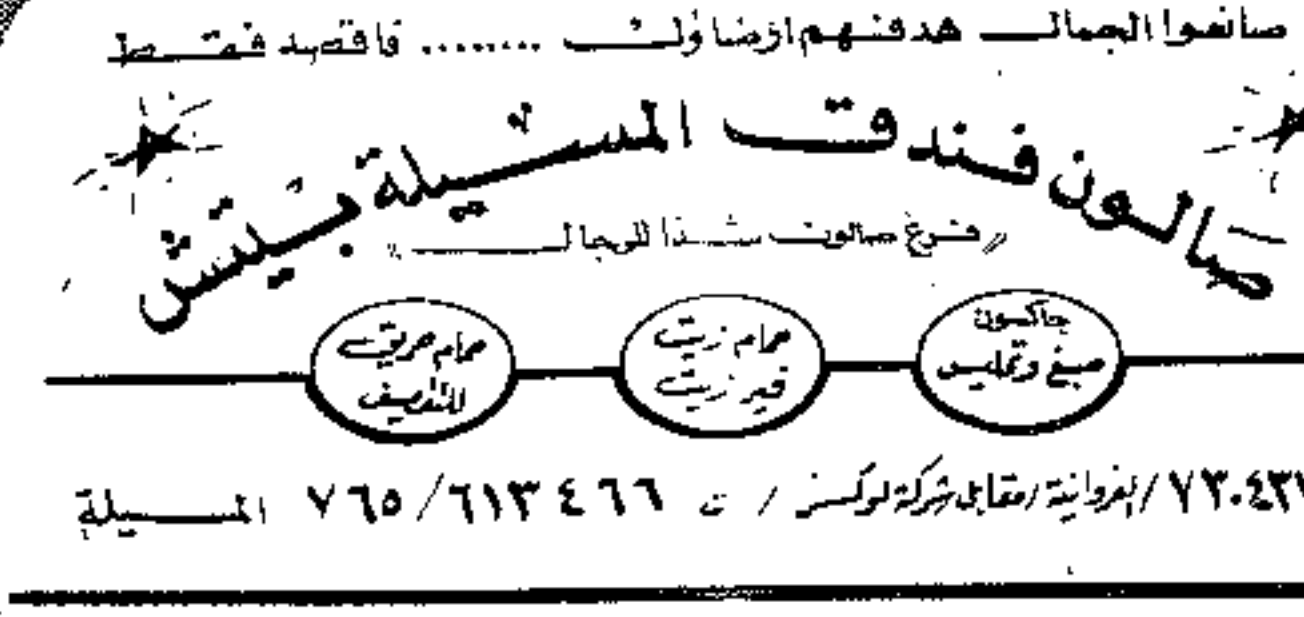 صانعوا الجمال هدفهم ارضاؤك ........ فاقصد فقط
صالون فندق المسيلة بيتش
"فرع صالون شذا للرجال"
جاكسون
صبغ وتمليس
حمام زيت
فير زيت
حمام مريق
للتقصف
/الفروانية/مقابل شركة لوكس / ت ٦١٣٤٦٦/٧٦٥ المسيلة